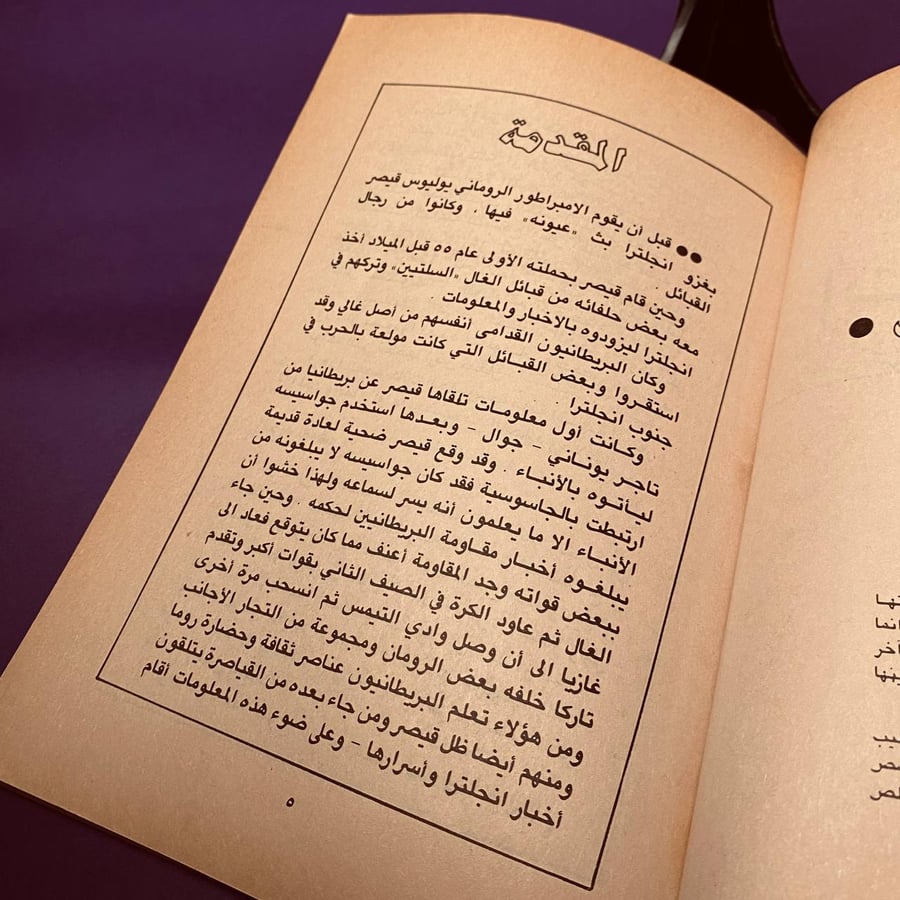 المقدمة
●● قبل أن يقوم الامبراطور الروماني يوليوس قيصر
بغزو انجلترا بث «عيونه» فيها ، وكانوا من رجال
القبائل .
وحين قام قيصر بحملته الأولى عام ٥٥ قبل الميلاد أخذ
معه بعض حلفائه من قبائل الغال «السلتيين» وتركهم في
انجلترا ليزودوه بالاخبار والمعلومات .
وكان البريطانيون القدامى أنفسهم من أصل غالي وقد
استقروا وبعض القبائل التي كانت مولعة بالحرب في
جنوب انجلترا .
وكانت أول معلومات تلقاها قيصر عن بريطانيا من
تاجر يوناني - جوال - وبعدها استخدم جواسيسه
ليأتوه بالأنباء . وقد وقع قيصر ضحية لعادة قديمة
ارتبطت بالجاسوسية فقد كان جواسيسه لا يبلغونه من
الأنباء الا ما يعلمون أنه يسر لسماعه ولهذا خشوا أن
يبلغوه أخبار مقاومة البريطانيين لحكمه . وحين جاء
ببعض قواته وجد المقاومة أعنف مما كان يتوقع فعاد الى
الغال ثم عاود الكرة في الصيف الثاني بقوات أكبر وتقدم
غازيا الى أن وصل وادي التيمس ثم انسحب مرة أخرى
تاركا خلفه بعض الرومان ومجموعة من التجار الأجانب
ومن هؤلاء تعلم البريطانيون عناصر ثقافة وحضارة روما
ومنهم أيضا ظل قيصر ومن جاء بعده من القياصرة يتلقون
أخبار انجلترا وأسرارها - وعلى ضوء هذه المعلومات أقام
٥